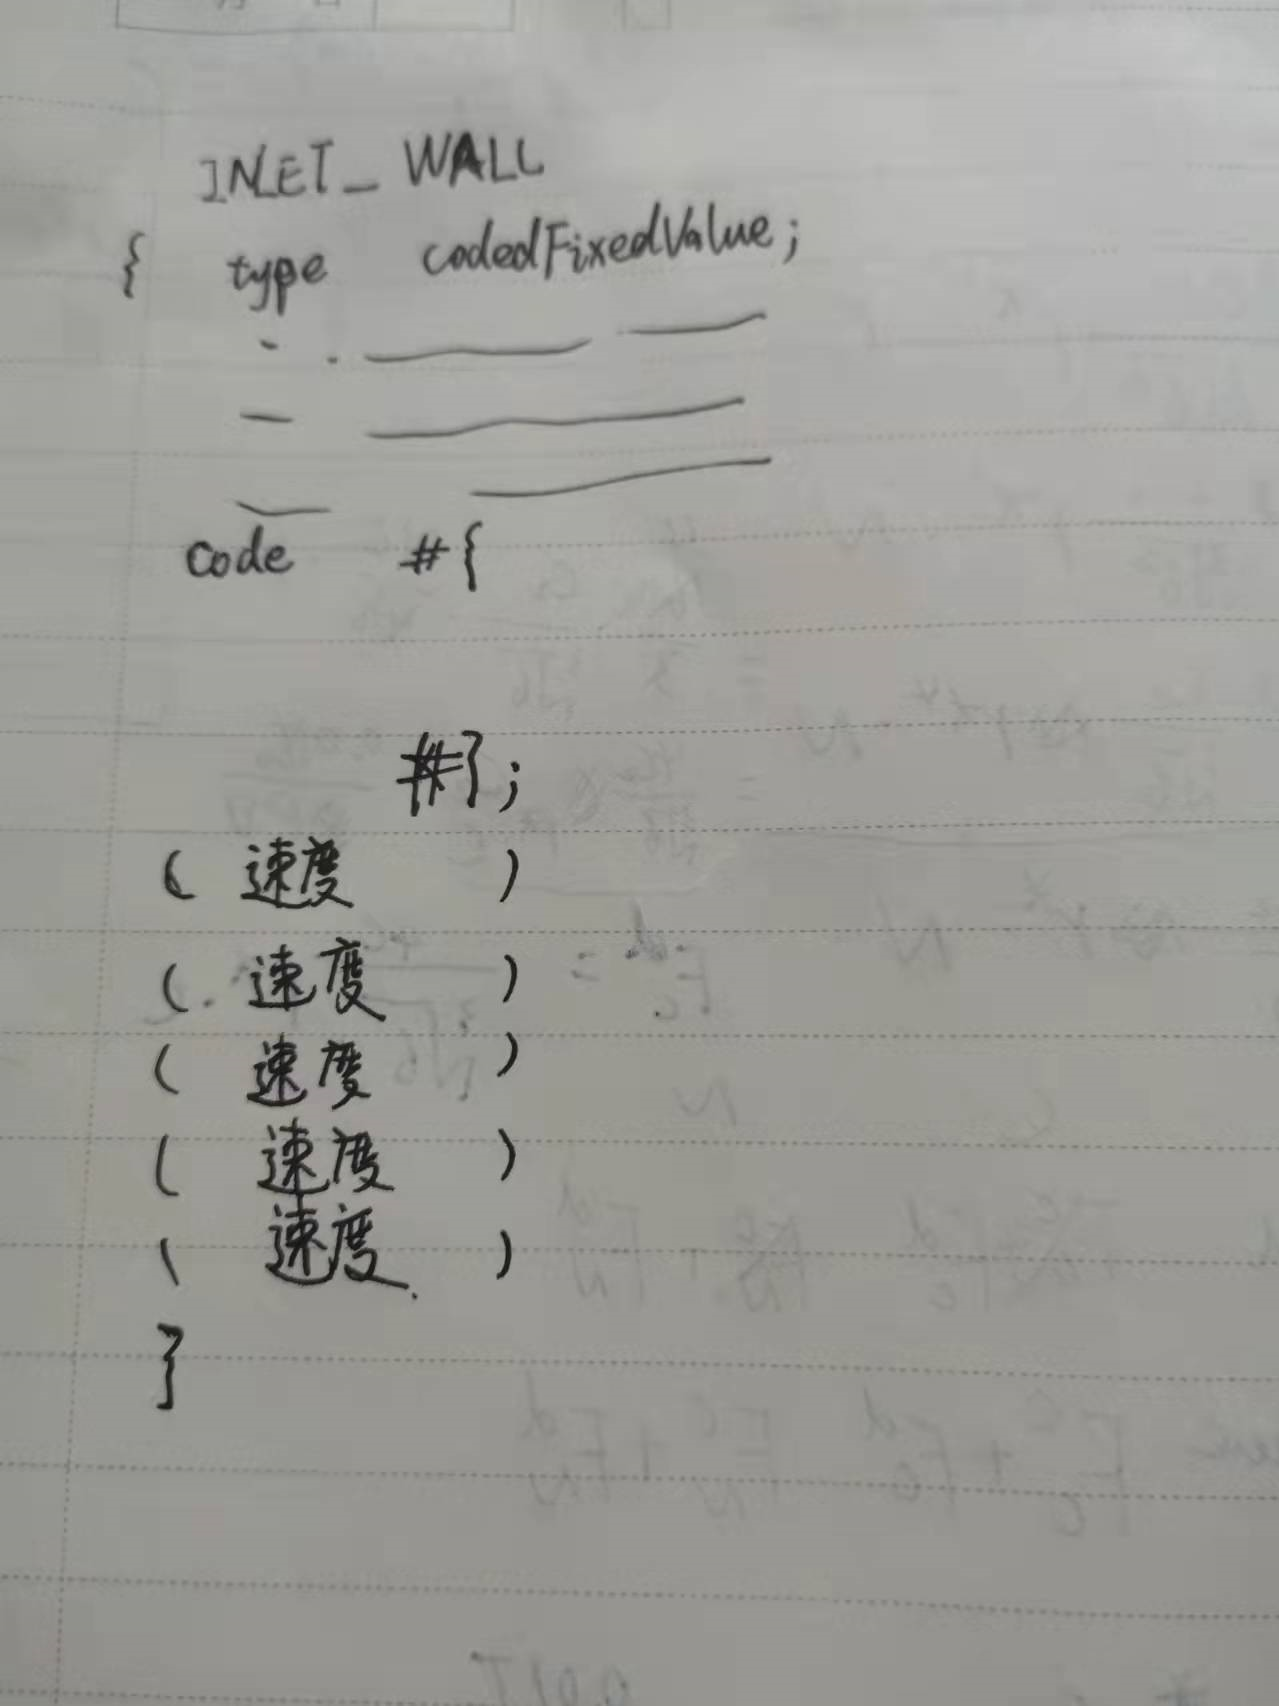 INLET_WALL
{ type codedFixedValue;
code #{
#};
( 速度 )
( 速度 )
( 速度 )
( 速度 )
( 速度 )
}